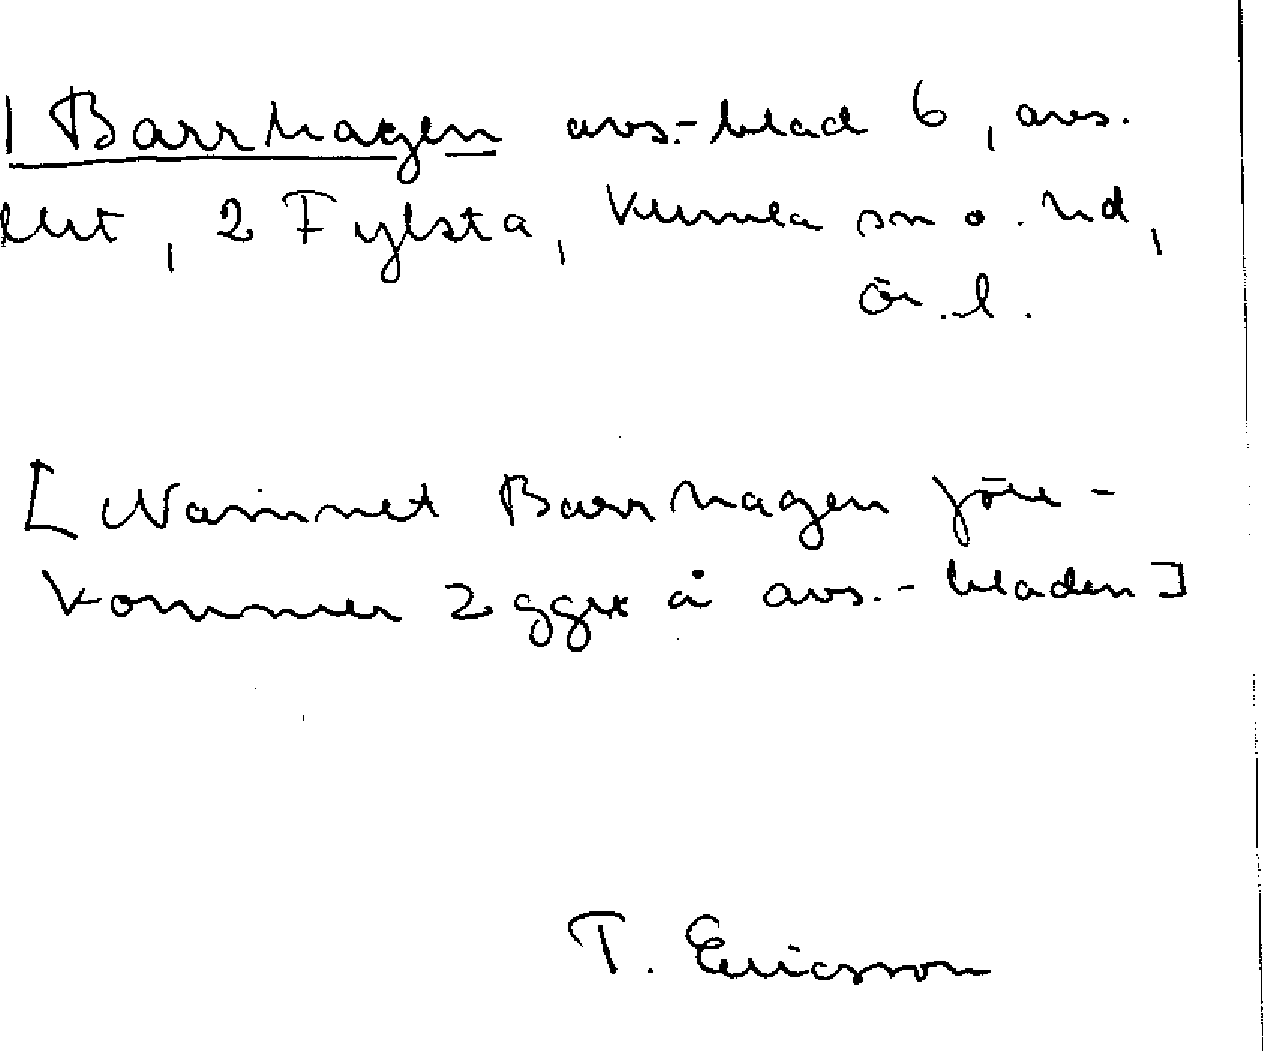 1 Barrhagen avs.-blad 6, avs.
, 2 Fylsta, Kumla sn o. hd,
Ör. l.
[Namnet Barrhagen före-
kommer 2 ggr å avs.-bladen]
T. Ericsson